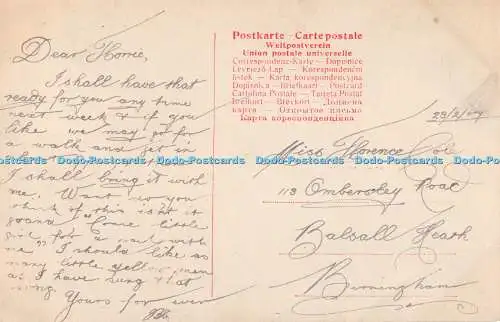 Dear Florrie,
I shall have that
ready for you any time
next week & if you
like we may go for
a walk and get in
I shall bring it with
me. Want you to
think of this isn't it
grand "Come little
girl for a sail with
me" I should like as
many little yellow
as I have sung that
song.
Yours for ever
Postkarte - Carte postale
Weltpostverein
Union postale universelle
Correspondenz-Karte - Dopisnice
Levelező-Lap - Korespondenční
lístek - Karta korespondencyjna
Dopisnica - Briefkaart - Postcard
Cartolina Postale - Tarjeta Postal
Brefkort - Brevkort - Дописна
карта - Открытое письмо
Карта кореспонденційна
29/2/07
Miss Florence Cole
113 Ombersley Road
Balsall Heath
Birmingham
Dodo-Postcards Dodo-Postcards Dodo-Postcards Dodo-Postcards Dodo-Postcards Dodo-Postcards
Dodo-Postcards Dodo-Postcards Dodo-Postcards Dodo-Postcards Dodo-Postcards Dodo-Postcards